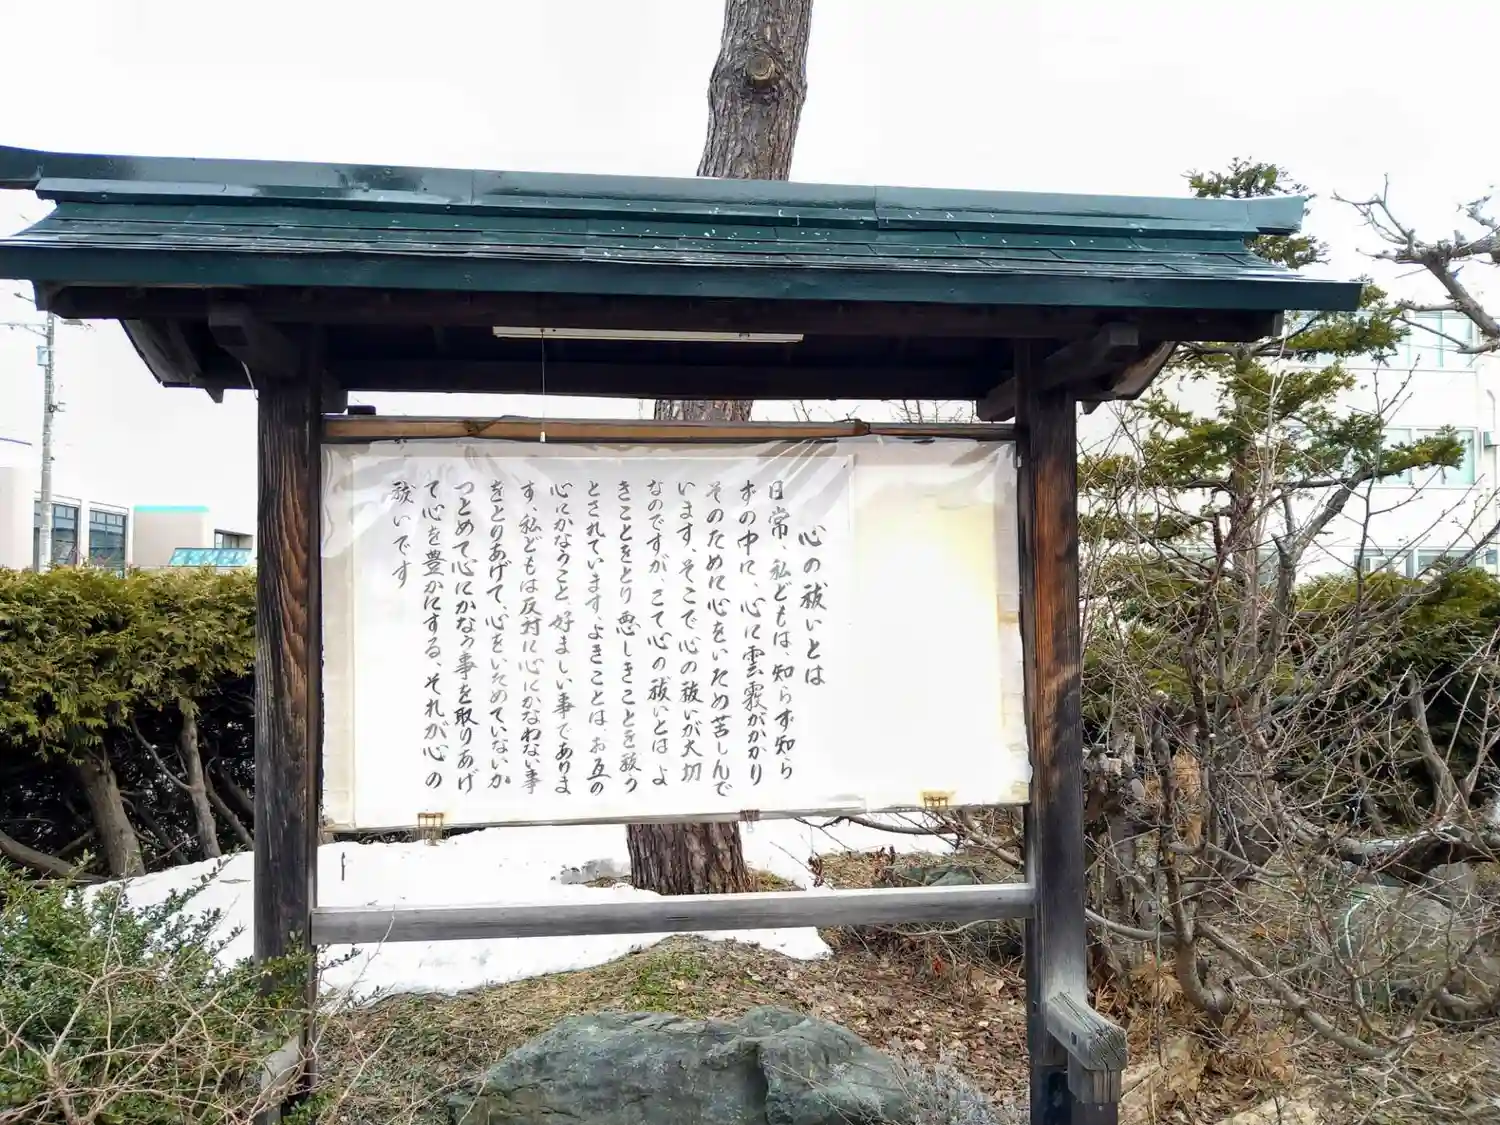 心の祓いとは
日常、私どもは、知らず知ら
ずの中に、心に雲霧がかかり
そのために心をいため苦しんで
います、そこで心の祓いが大切
なのですが、さて心の祓いとは、よ
きことをとり悪しきことを祓う
とされています、よきことは、お互の
心にかなうこと、好ましい事でありま
す、私どもは反対に心にかなわない事
をとりあげて、心をいためていないか
つとめて心にかなう事を取りあげ
て心を豊かにする、それが心の
祓いです